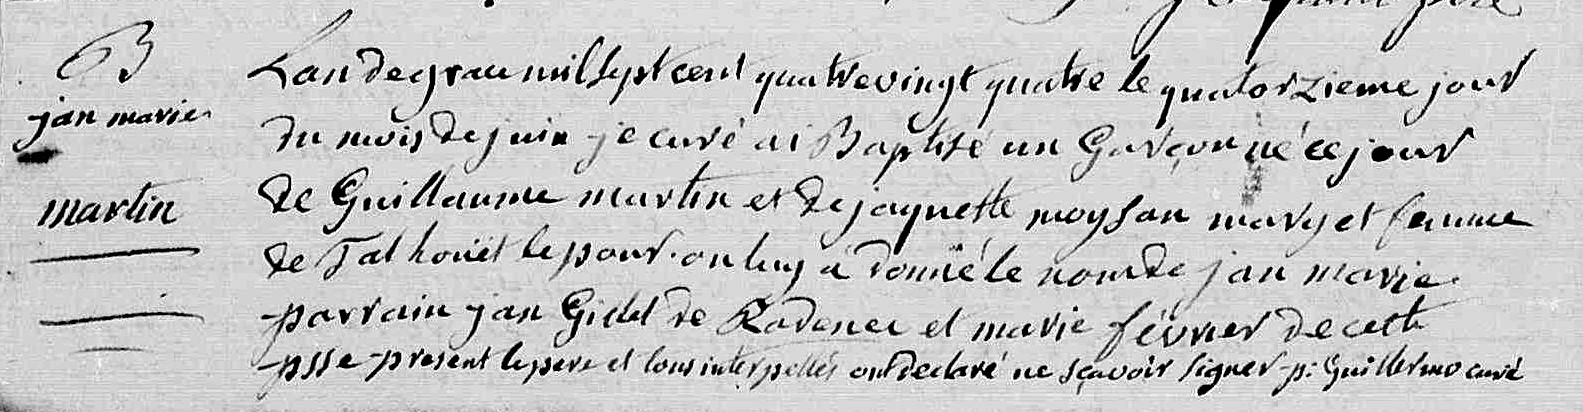 B
jan marie
martin
Lan de grace mil sept cent quatrevingt quatre le quatorzieme jour
du mois de juin je curé ai Baptisé un Garçon né ce jour
de Guillaume martin et de jaquette moysan mary et femme
de Talhouët le pour on luy a donné le nom de jan marie
parrain jan Gillet de Radenec et marie février de cette
psse present le pere et tous interpellés ont declaré ne sçavoir signer p: Guillermo curé